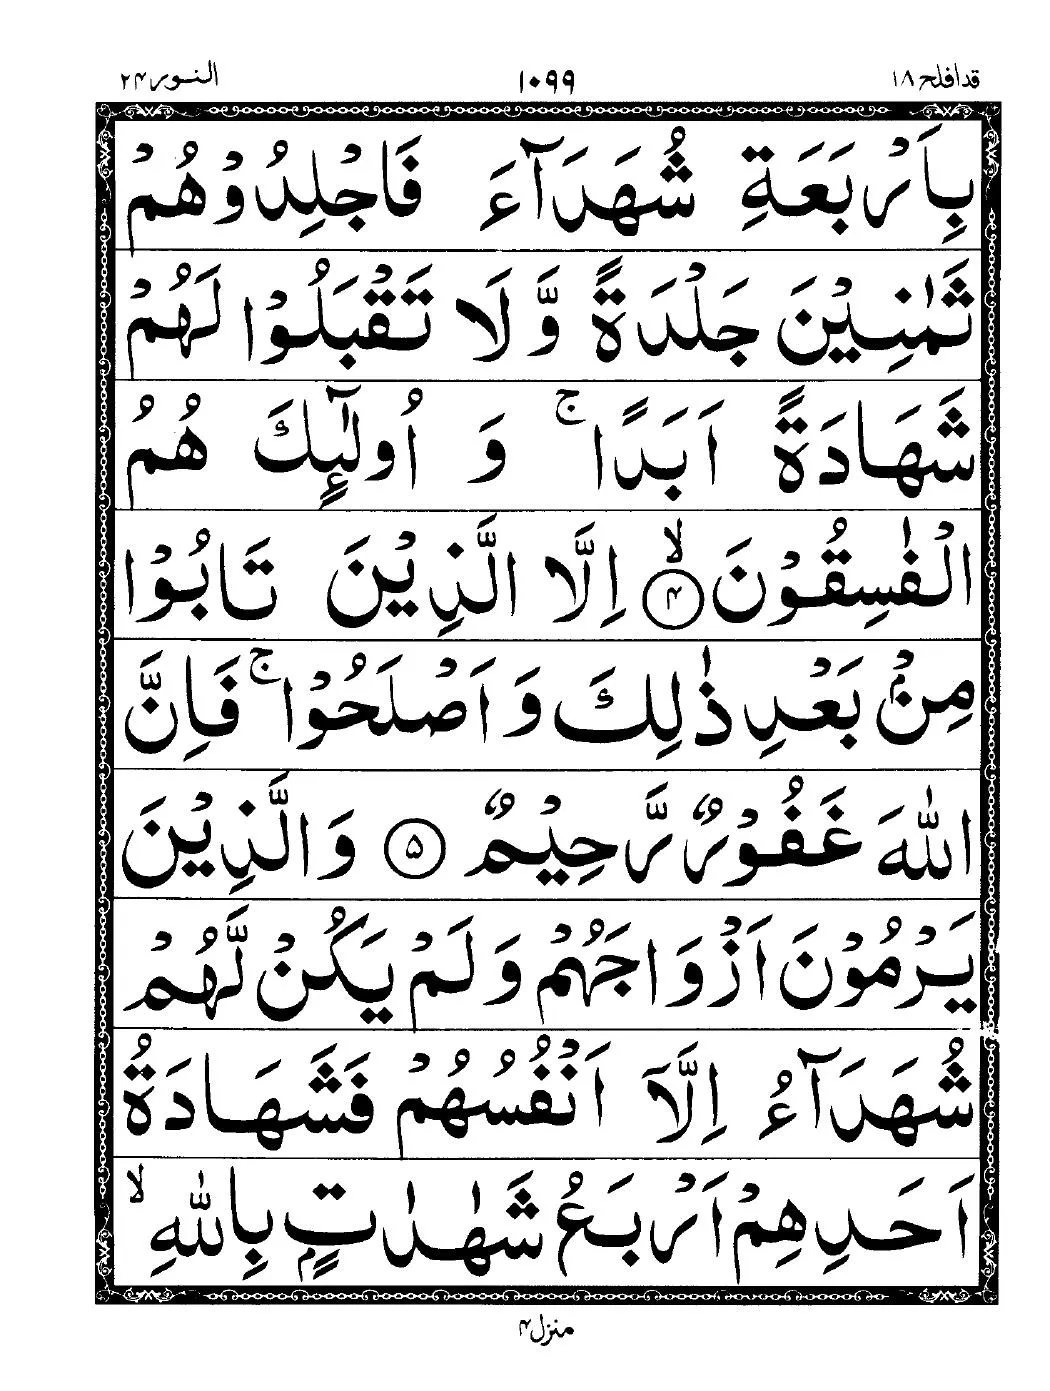 قدافلح ١٨
١٠٩٩
النور ٢٤
بِاَرْبَعَةِ شُهَدَآءَ فَاجْلِدُوْهُمْ
ثَمٰنِيْنَ جَلْدَةً وَّ لَا تَقْبَلُوْا لَهُمْ
شَهَادَةً اَبَدًا ۚ وَ اُولٰٓئِكَ هُمُ
الْفٰسِقُوْنَ ۙ ﴿۴﴾ اِلَّا الَّذِيْنَ تَابُوْا
مِنْۢ بَعْدِ ذٰلِكَ وَ اَصْلَحُوْا ۚ فَاِنَّ
اللّٰهَ غَفُوْرٌ رَّحِيْمٌ ﴿۵﴾ وَ الَّذِيْنَ
يَرْمُوْنَ اَزْوَاجَهُمْ وَ لَمْ يَكُنْ لَّهُمْ
شُهَدَآءُ اِلَّاۤ اَنْفُسُهُمْ فَشَهَادَةُ
اَحَدِهِمْ اَرْبَعُ شَهٰدٰتٍۭ بِاللّٰهِ ۙ
منزل ۴